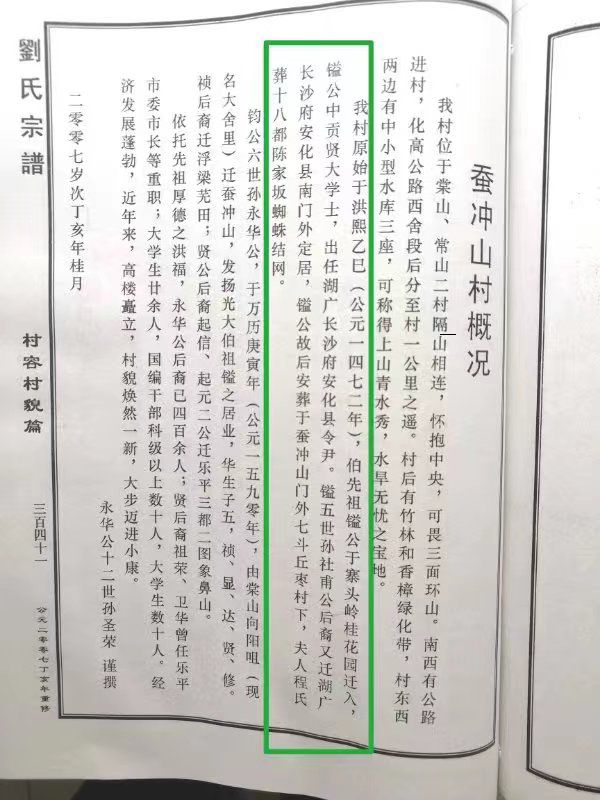 蚕冲山村概况
我村位于棠山、常山二村隔山相连，怀抱中央，可畏三面环山。南西有公路
进村，化高公路西舍段后分至村一公里之遥。村后有竹林和香樟绿化带，村东西
两边有中小型水库三座，可称得上山青水秀，水旱无忧之宝地。
我村原始于洪熙乙巳（公元一四七二年），伯先祖镒公于寨头岭桂花园迁入，
镒公中贡贤大学士，出任湖广长沙府安化县令尹。镒五世孙社甫公后裔又迁湖广
长沙府安化县南门外定居，镒公故后安葬于蚕冲山门外七斗丘枣村下，夫人程氏
葬十八都陈家坂蜘蛛结网。
钧公六世孙永华公，于万历庚寅年（公元一五九零年），由棠山向阳咀（现
名大舍里）迁蚕冲山，发扬光大伯祖镒之居业，华生子五，祯、显、达、贤、修。
祯后裔迁浮梁芜田；贤公后裔起信、起元二公迁乐平三都二图象鼻山。
依托先祖厚德之洪福，永华公后裔已四百余人；贤后裔祖荣、卫华曾任乐平
市委市长等重职；大学生廿余人，国编干部科级以上数十人，大学生数十人。经
济发展蓬勃，近年来，高楼矗立，村貌焕然一新，大步迈进小康。
永华公十二世孙圣荣 谨撰
二零零七岁次丁亥年桂月
劉氏宗譜
村容村貌篇
三百四十一
公元二零零七丁亥年重修